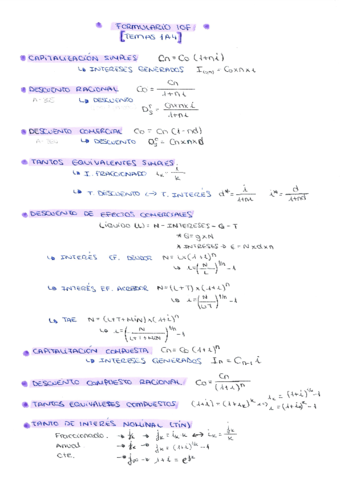 FORMULARIO IOF
[TEMAS 1A4]
CAPITALIZACIÓN SIMPLES Cn = Co (1+ni)
↳ INTERESES GENERADOS I(0,n) = Co x n x i
DESCUENTO RACIONAL Co = Cn / 1+ni
↳ DESCUENTO D = Cn x n x i / 1+ni
DESCUENTO COMERCIAL Co = Cn (1-nd)
↳ DESCUENTO D = Cn x n x d
TANTOS EQUIVALENTES SIMPLES.
↳ I. FRACCIONADO ik = i / k
↳ T. DESCUENTO ↔ T. INTERÉS d* = i / 1+ni i* = d / 1+nd
DESCUENTO DE EFECTOS COMERCIALES
LÍQUIDO (L) = N - INTERESES - G - T
* G = g x N
* INTERESES → = N x d x n
↳ INTERÉS EF. DEUDOR N = L x (1+i)^n
↳ i = (N / L)^1/n - 1
↳ INTERÉS EF. ACREEDOR N = (L+T) x (1+i)^n
↳ i = (N / L+T)^1/n - 1
↳ TAE N = (L+T+MiN) x (1+i)^n
↳ i = (N / L+T+MiN)^1/n - 1
CAPITALIZACIÓN COMPUESTA Cn = Co (1+i)^n
↳ INTERESES GENERADOS In = Cn-1 i
DESCUENTO COMPUESTO RACIONAL Co = Cn / (1+i)^n
TANTOS EQUIVALENTES COMPUESTOS. (1+i) = (1+ik)^k => ik = (1+i)^1/k - 1
i = (1+ik)^k - 1
TANTO DE INTERÉS NOMINAL (TIN)
Fraccionado. → jk = ik k ↔ ik = jk / k
Anual
Cte.